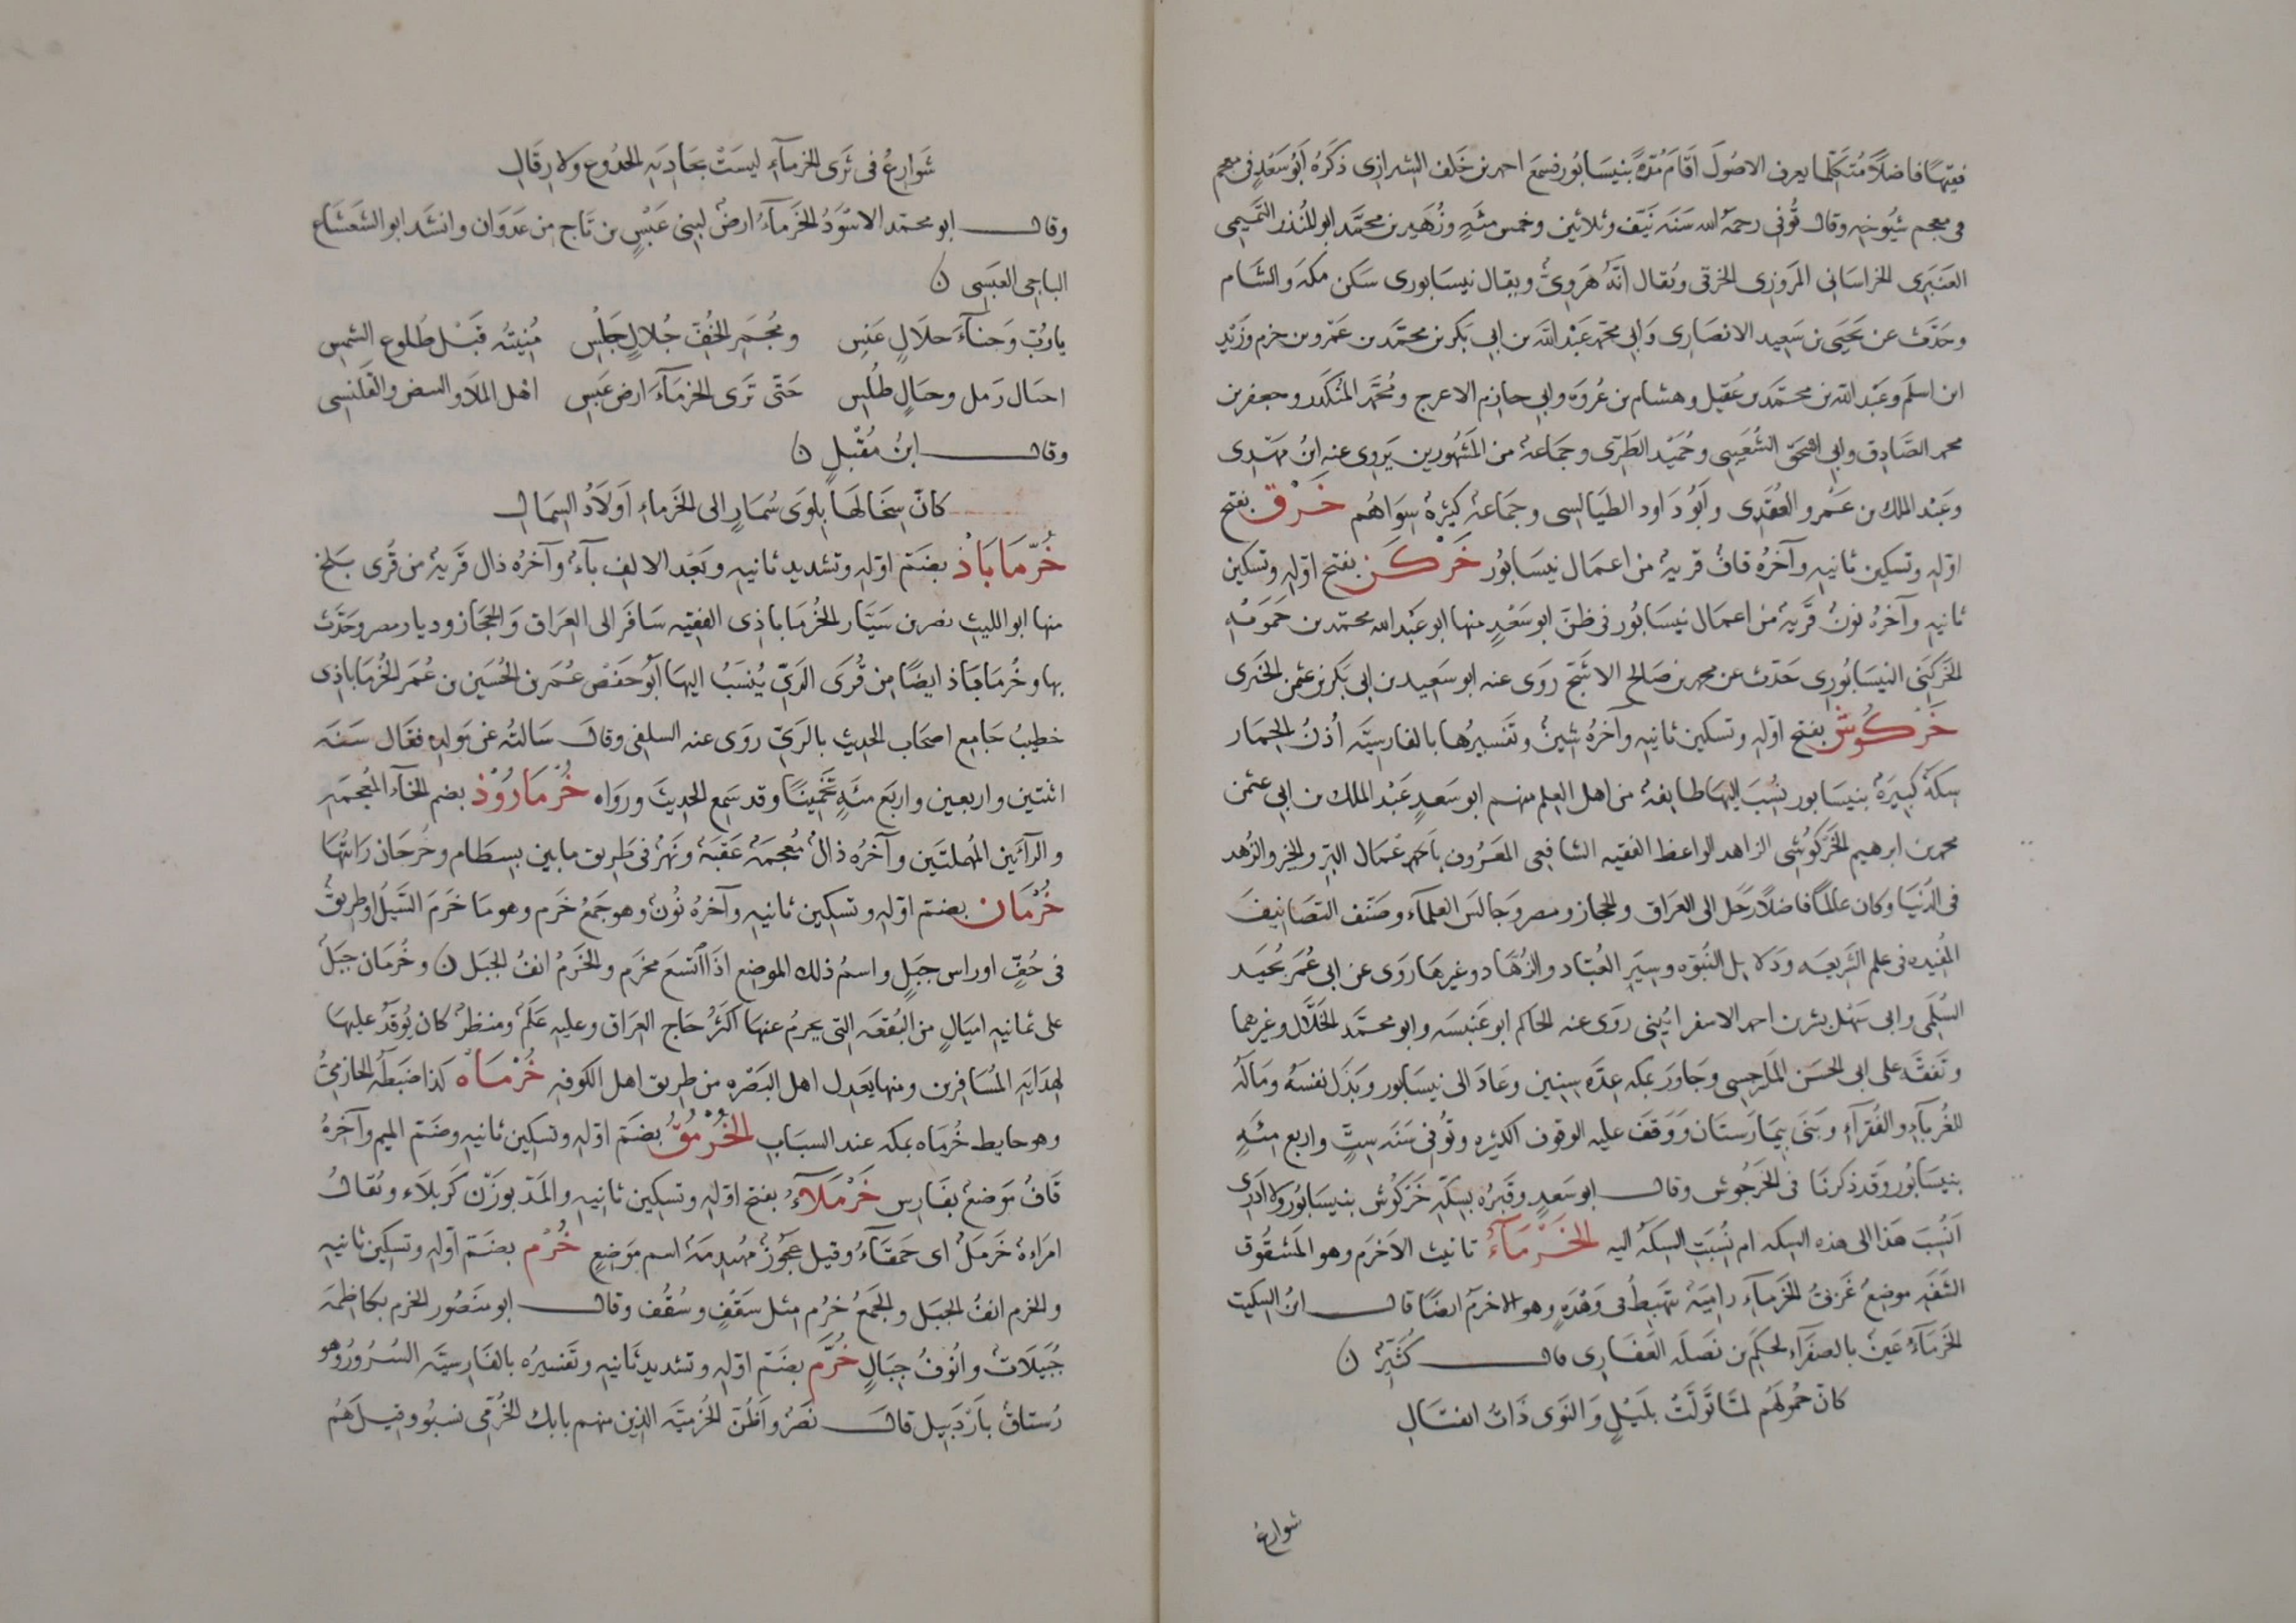 فقيهًا فاضلًا مُتكلّما يعرف الاصُولَ اقامَ مُدّةً بنيسَابُور فسمعَ احمد بن خَلَف الشيرازى ذكَرَهُ ابُو سَعْدٍ فى معجم
فى معجم شُيُوخِه وقال تُوفّى رحمَهُ الله سَنَه نَيّف وثلاثين وخمس مئَهٍ وزُهَير بن محمَّد ابو المُنذر التَّميمى
العَنبَرى الخراسَانى المَروَزِى الخرقى ويُقال انَّهُ هَروِىٌّ ويقال نيسَابورى سَكن مكهَ والشَام
وحَدَّثَ عن يَحيَى بن سَعِيد الانصَارِى وَابى محمّد عَبْد اللَه بن ابى بَكر بن محمَّد بن عَمْرو بن حزم وزَيْدِ
ابن اسلَم وعَبْد الله بن محمَّد بن عُقَيل وهشام بن عُروَه وابى حازِم الاعرج ومُحمَّد المُنكَدر وجعفر بن
محمد الصَّادِق وابى اسْحَق الشُّعَيبى وحُمَيْد الطَّوِيل وجَمَاعةٌ من المَشهُورين يَروِى عنهِ ابنُ مَهْدِى
وعَبْد الملك بن عَمْرو العُقَدِى وابُو دَاود الطيَالسِى وجَماعهٌ كثيرةٌ سِوَاهُم خَرْق بفتح
اوّلِهِ وتسكين ثانيهِ وآخرُهُ قافٌ قريهٌ من اعمَال نيسَابُور خَرْكَن بفتح اوّلِهِ وتسكين
ثانيهِ وآخرُهُ نونٌ قَريهٌ من اعمَال نيسَابُور فى ظنّ ابو سَعْدٍ منها ابو عَبْد الله محمّد بن حَمَويْه
الخَرْكَنِى النيسَابُورِى حَدّث عن محمد بن صَالح الاشَجّ رَوَى عنه ابو سَعِيد بن ابى بَكر بن عثمن الحَيرى
خَرْكُوش بفتح اوّلِهِ وتسكين ثانيهِ وآخرُهُ شينٌ وتَفسيرُها بالفارسيَّه أُذنُ الحِمَار
سِكَهٌ كبيَرةٌ بنيسَابور نُسِبَ اليهَا طايفهٌ من اهل العِلم منهم ابو سَعدٍ عَبْد الملك بن ابى عثمن
محمد بن ابرهيم الخَرْكُوشِى الزاهد الواعظ الفقيه الشافعى المعرُوف باعمَال البرّ والخير والزُهد
فى الدُنيَا وكان عالمًا فاضلًا رَحَل الى العِرَاق والحجاز ومصر وجَالسَ العلمآء وصَنَّف التصَانيفَ
المُفيده فى علم الشَرِيعَه ودَلايل النُبوّه وسِيَرِ العُبّاد والزُهّاد وغيرهَا رَوَى عن ابى عُمَر نُجَيد
السُلَمى وابى سَهْل بشر بن احمد الاسفرايُينى رَوَى عنه الحَاكم ابو عَبْد الله وابو محمَّد الخَلّال وغيرهما
وتَفَقَّه على ابى الحَسَن المَاسَرجِسِى وجَاوَرَ بمكه عِدَّه سِنِين وعَادَ الى نيسَابور وبَذَل نفسَهُ ومَالَهُ
للغُرَبآء والفُقرآء وبَنَى بيمَارَستَان ووَقَف عليه الوقوف الكثيره وتُوفّى سَنَه سِتٍّ واربع مئَهٍ
بنيسَابُور وقَد ذكرنَا فى الخَرْجُوش وقالـــ ابو سَعدٍ وقَبْرُه بسِكَّهِ خَرْكُوش بنيسَابُور ولا ادرِى
اَنُسِبَ هَذا الى هذه السِكه ام نُسِبَتِ السِكَهُ اليه الخَرْمَآءُ تانيث الاَخرَم وهو المَشقُوق
الشَفَهِ موضعٌ عَرَفتُ الخَرمآء رابِيَهٌ تَهبطُ فى وَهْدَهٍ وهو الاخرمُ ايضًا قالـــ ابنُ السكِيت
الخَرمَآءُ عَينٌ بالصفرآء لحكَم بن نَضلَه الغفَارى قالـــ كُثيّرٌ ن
كانّ حُمولَهُم لمّا تَوَلَّتْ بِلَيْلٍ وَالنوَى ذَاتُ انفتَالِ
شوارعُ
شَوَارِعُ فى ثَرَى الخرمآءِ ليسَتْ بجَاذِيَهِ الجُذوعِ ولا رِقَالِ
وقالـــ ابو محمّد الاسْوَدُ الخَرمآءُ ارضٌ لبنِى عَبْسٍ بن نَاج من عَدَوَان وانشَدَ ابو الشَعْشَاع
الناجى العَبسِى ن
يا رُبّ وَجنآءَ حلَالٍ عَنسِ ومُجمَرِ الخُفّ جُلالٍ جَلْسِ مُنِيتُه قَبْل طُلوعِ الشمسِ
احبَال رَمل وجبَالٍ طُلْسِ حَتّى تَرَى الخرمَآءَ ارض عَبسِ اهل المُلَآءِ البيض والقَلَنسِى
وقالـــ ابنُ مُقْبلٍ ن
كانّ سِخَالَهَا بِلِوَى سُمَارٍ الى الخَرماءِ اَولَادُ السِمَالِ
خُرَّمَابَاذ بضَمّ اوّلِهِ وتشديد ثانيهِ وبَعْد الالف بآءٌ وآخرُه ذال قَريهٌ من قُرى بَلخ
منها ابو الليث نصر بن سَيّار الخُرمَاباذِى الفقيه سَافَر الى العِرَاق وَالحِجَاز وديار مصر وحَدّث
بها وخُرمَاباذ ايضًا من قُرَى الرَىّ يُنسَبُ اليهَا ابُو حَفْص عُمَر بن الحُسَين بن عُمَر الخُرمَاباذِى
خطِيبُ جَامِع اصحَاب الحديث بالرَىّ رَوَى عنه السلفى وقالَ سَالتُه عَن مَولِدِه فقال سَنَه
اثنتين واربعين واربَع مئَهٍ تَخمينًا وقد سَمِع الحديثَ ورَوَاه خُرمَارُوْذ بضم الخآء المُعجَمَهِ
والرآءَين المُهملتَين وآخرُه ذالٌ مُعجمَهٌ عَقَبَهٌ ونَهرٌ فى طَرِيق مابين بِسطَام وجُرجَان رَايْتُهَا
خُرْمَان بضمّ اوّلِهِ وتسكين ثانيهِ وآخرُهُ نُونٌ وهو جَمعُ خَرم وهو مَا خَرَمَ السَيْلُ او طرِيقٌ
فى قُفٍّ او راس جَبَلٍ واسمُ ذلك الموضعِ اذَا اتّسعَ مخرَم والخَرْمُ انفُ الجبَل ن وخُرمَان جبَلٌ
على ثمانيهِ اميَالٍ من البُقعَه التى يحرمُ عنهَا اكثرُ حَاج العِرَاق وعليهِ عَلَمٌ ومنظرٌ كان يُوقَدُ عليهَا
لهدَايهِ المُسَافرين ومنها يَعدِل اهل البَصْره من طريق اهل الكوفهِ خُرْمَاه كذا ضبَطَه الحَازمِىُّ
وهو حايط خُرمَاه بمكه عند السبَابِ الخُرْمُقُ بضَمّ اوّلهِ وتسكين ثانيهِ وضَمّ الميم وآخرُهُ
قَافٌ مَوضعٌ بفَارِس خَرْمَلَآءُ بفتح اوّلهِ وتسكين ثانيهِ والمَدّ بوزَن كَربلَاء وتُقالُ
امرَاهٌ خَرْمَلٌ اى حَمقَآءُ وقيل عجُوزٌ مُتهدِمَهٌ اسم مَوضعٍ خُرْم بضَمّ اوّلهِ وتسكين ثانيهِ
والخرم انفُ الجبَل والجَمعُ خُرُم مثل سَقْفٍ وسُقُف وقالـــ ابو مَنصُور الخرم بكاظمَه
جُبَيلَاتٌ واُنُوفُ جِبَالٍ خُرَّم بضَمّ اوّلهِ وتشديد ثانيهِ وتَفسيرُه بالفَارسيّه السُرُورُ وهو
رُستاقٌ باَردَبيل قالَـــ نَصْرٌ واَظُنّ الخُرّميَّه الذين منهم بابك الخُرّمِى نسبُو وقيل هُم